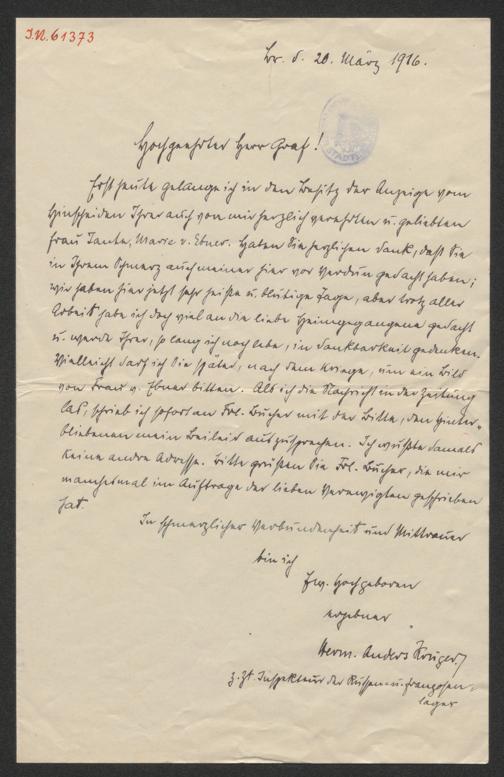 I.N. 61373
Br. d. 20. März 1916.
Hochgeehrter Herr Graf!
Erst heute gelange ich in den Besitz der Anzeige vom
Hinscheiden Ihrer auch von mir herzlich verehrten u. geliebten
Frau Tante, Marie v. Ebner. Haben Sie herzlichen Dank, daß Sie
in Ihrem Schmerz auch meiner hier vor Verdun gedacht haben;
wir haben hier jetzt sehr heiße u. blutige Tage, aber trotz aller
Arbeit habe ich doch viel an die liebe Heimgegangene gedacht
u. werde Ihrer, so lang ich noch lebe, in Dankbarkeit gedenken.
Vielleicht darf ich Sie später, nach dem Kriege, um ein Bild
von Frau v. Ebner bitten. Als ich die Nachricht in der Zeitung
las, schrieb ich sofort an Frl. Bucher mit der Bitte, den Hinter-
bliebenen mein Beileid auszusprechen. Ich wußte damals
keine andre Adresse. Bitte grüßen Sie Frl. Bucher, die mir
manchesmal im Auftrage der lieben Verewigten geschrieben
hat.
In schmerzlicher Verbundenheit und Mittrauer
bin ich
Ew. Hochgeboren
ergebner
Herm. Anders Krüger.
z. Zt. Inspekteur der Russen- u. Franzosen-
lager